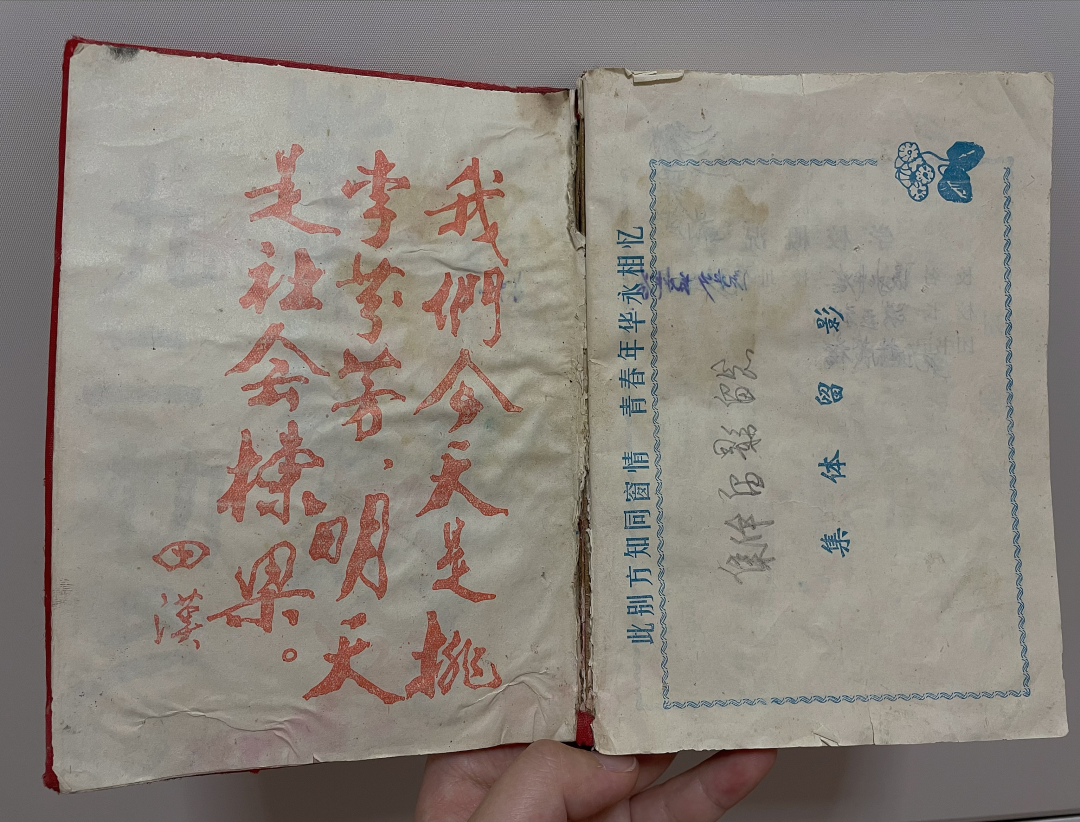 我們今天是桃
李芬芳，明天
是社会栋梁。
田漢
此别方知同窗情 青春年华永相忆
集体留影留念
集体留影